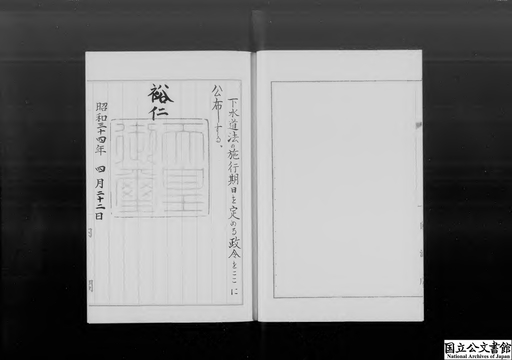 下水道法の施行期日を定める政令をここに
公布する。
裕仁
天皇
御璽
昭和三十四年 四月二十二日
国立公文書館
National Archives of Japan